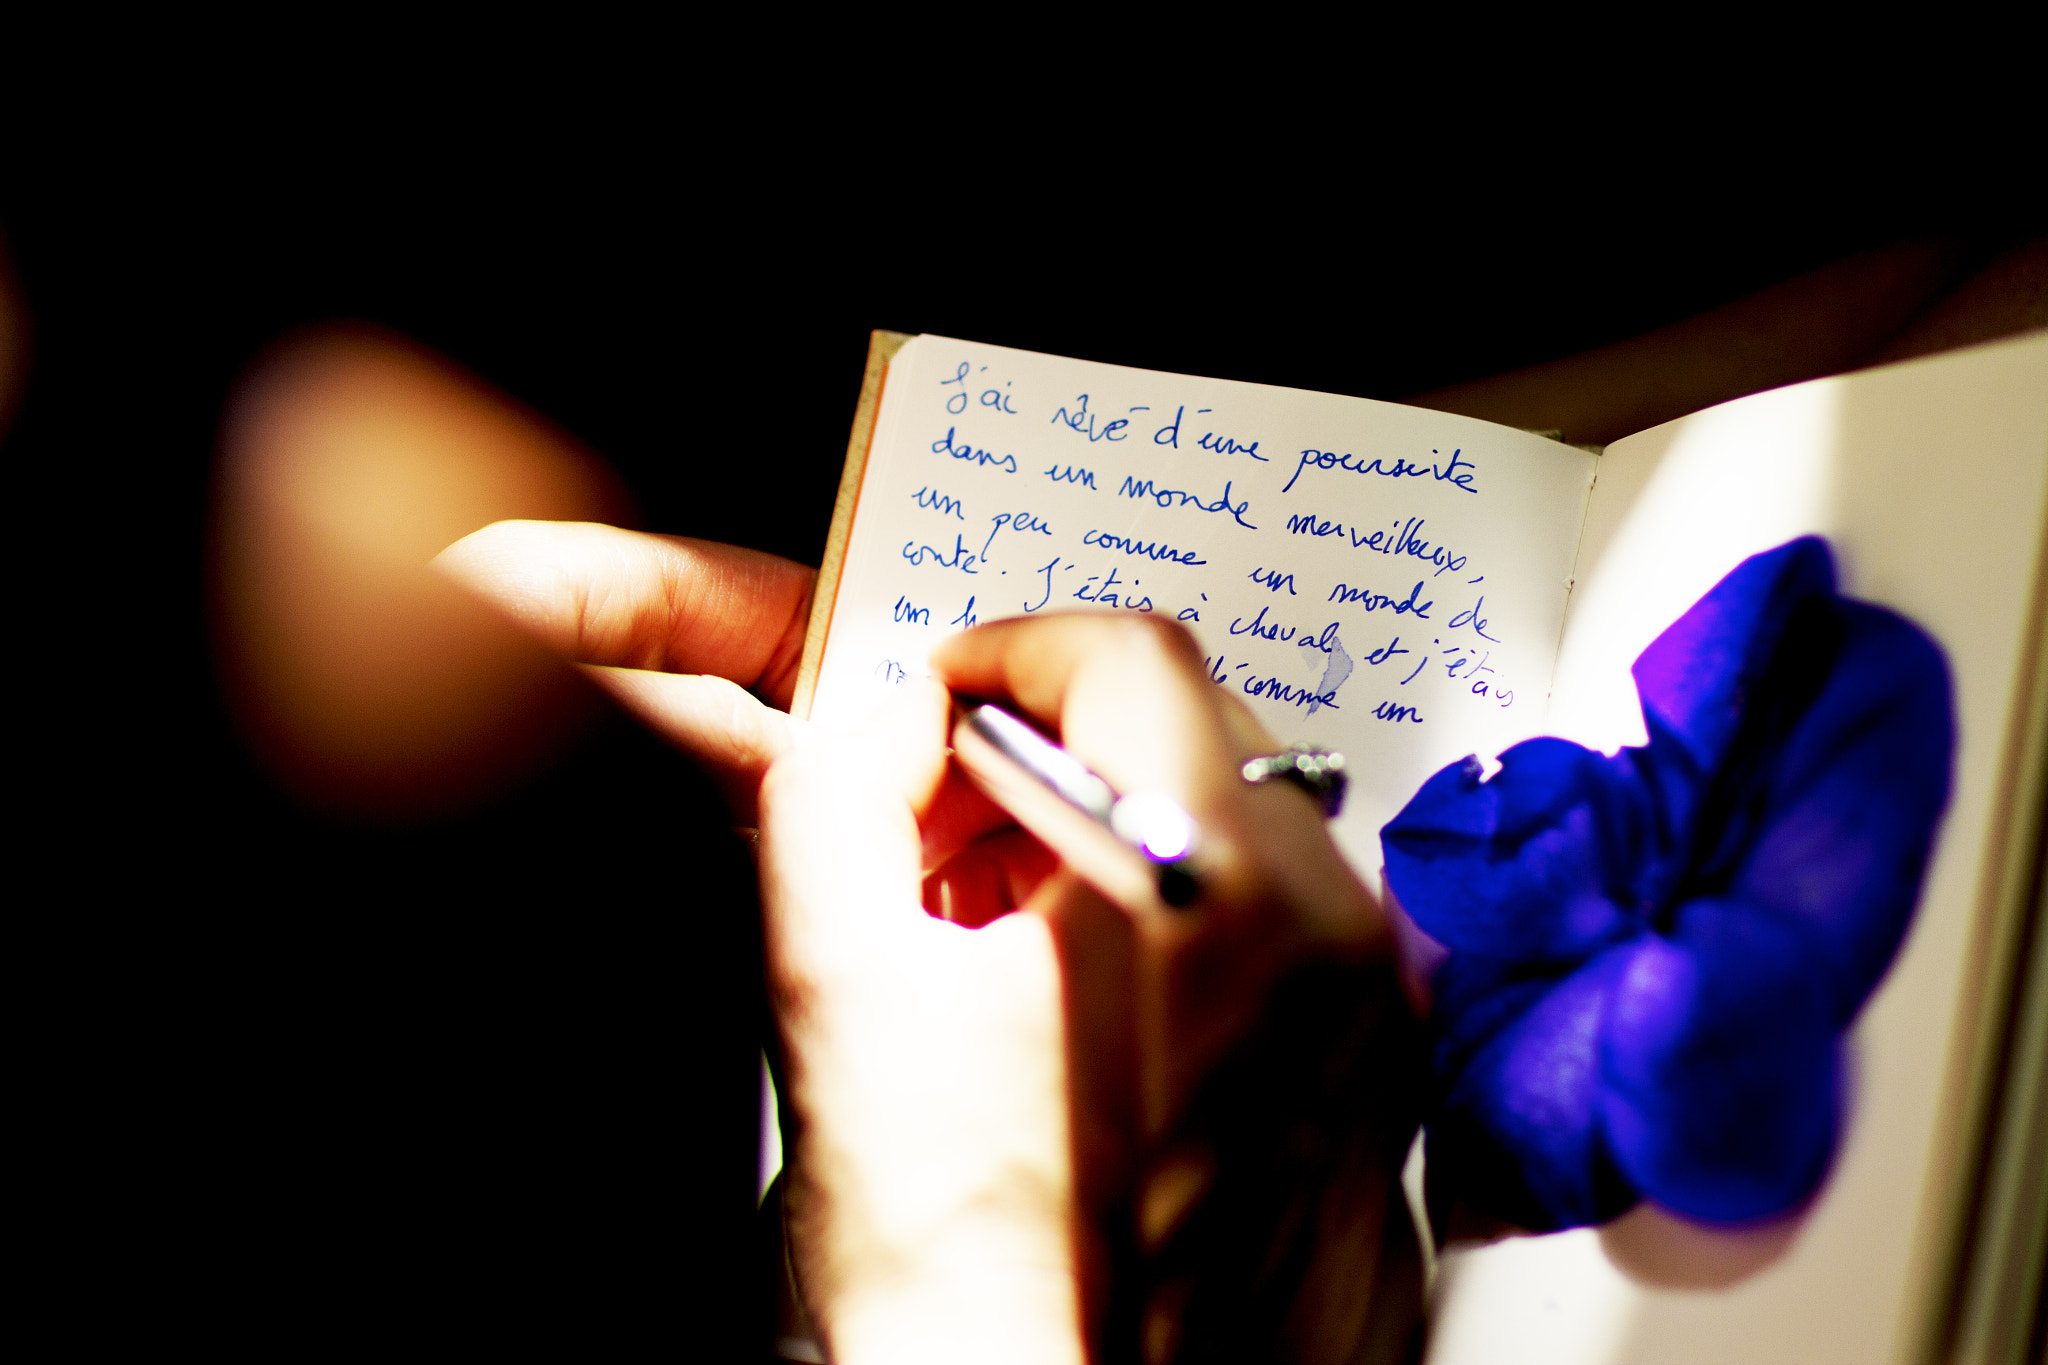 J'ai rêvé d'une poursuite
dans un monde merveilleux,
un peu comme un monde de
conte. J'étais à cheval et j'étais
un comme un